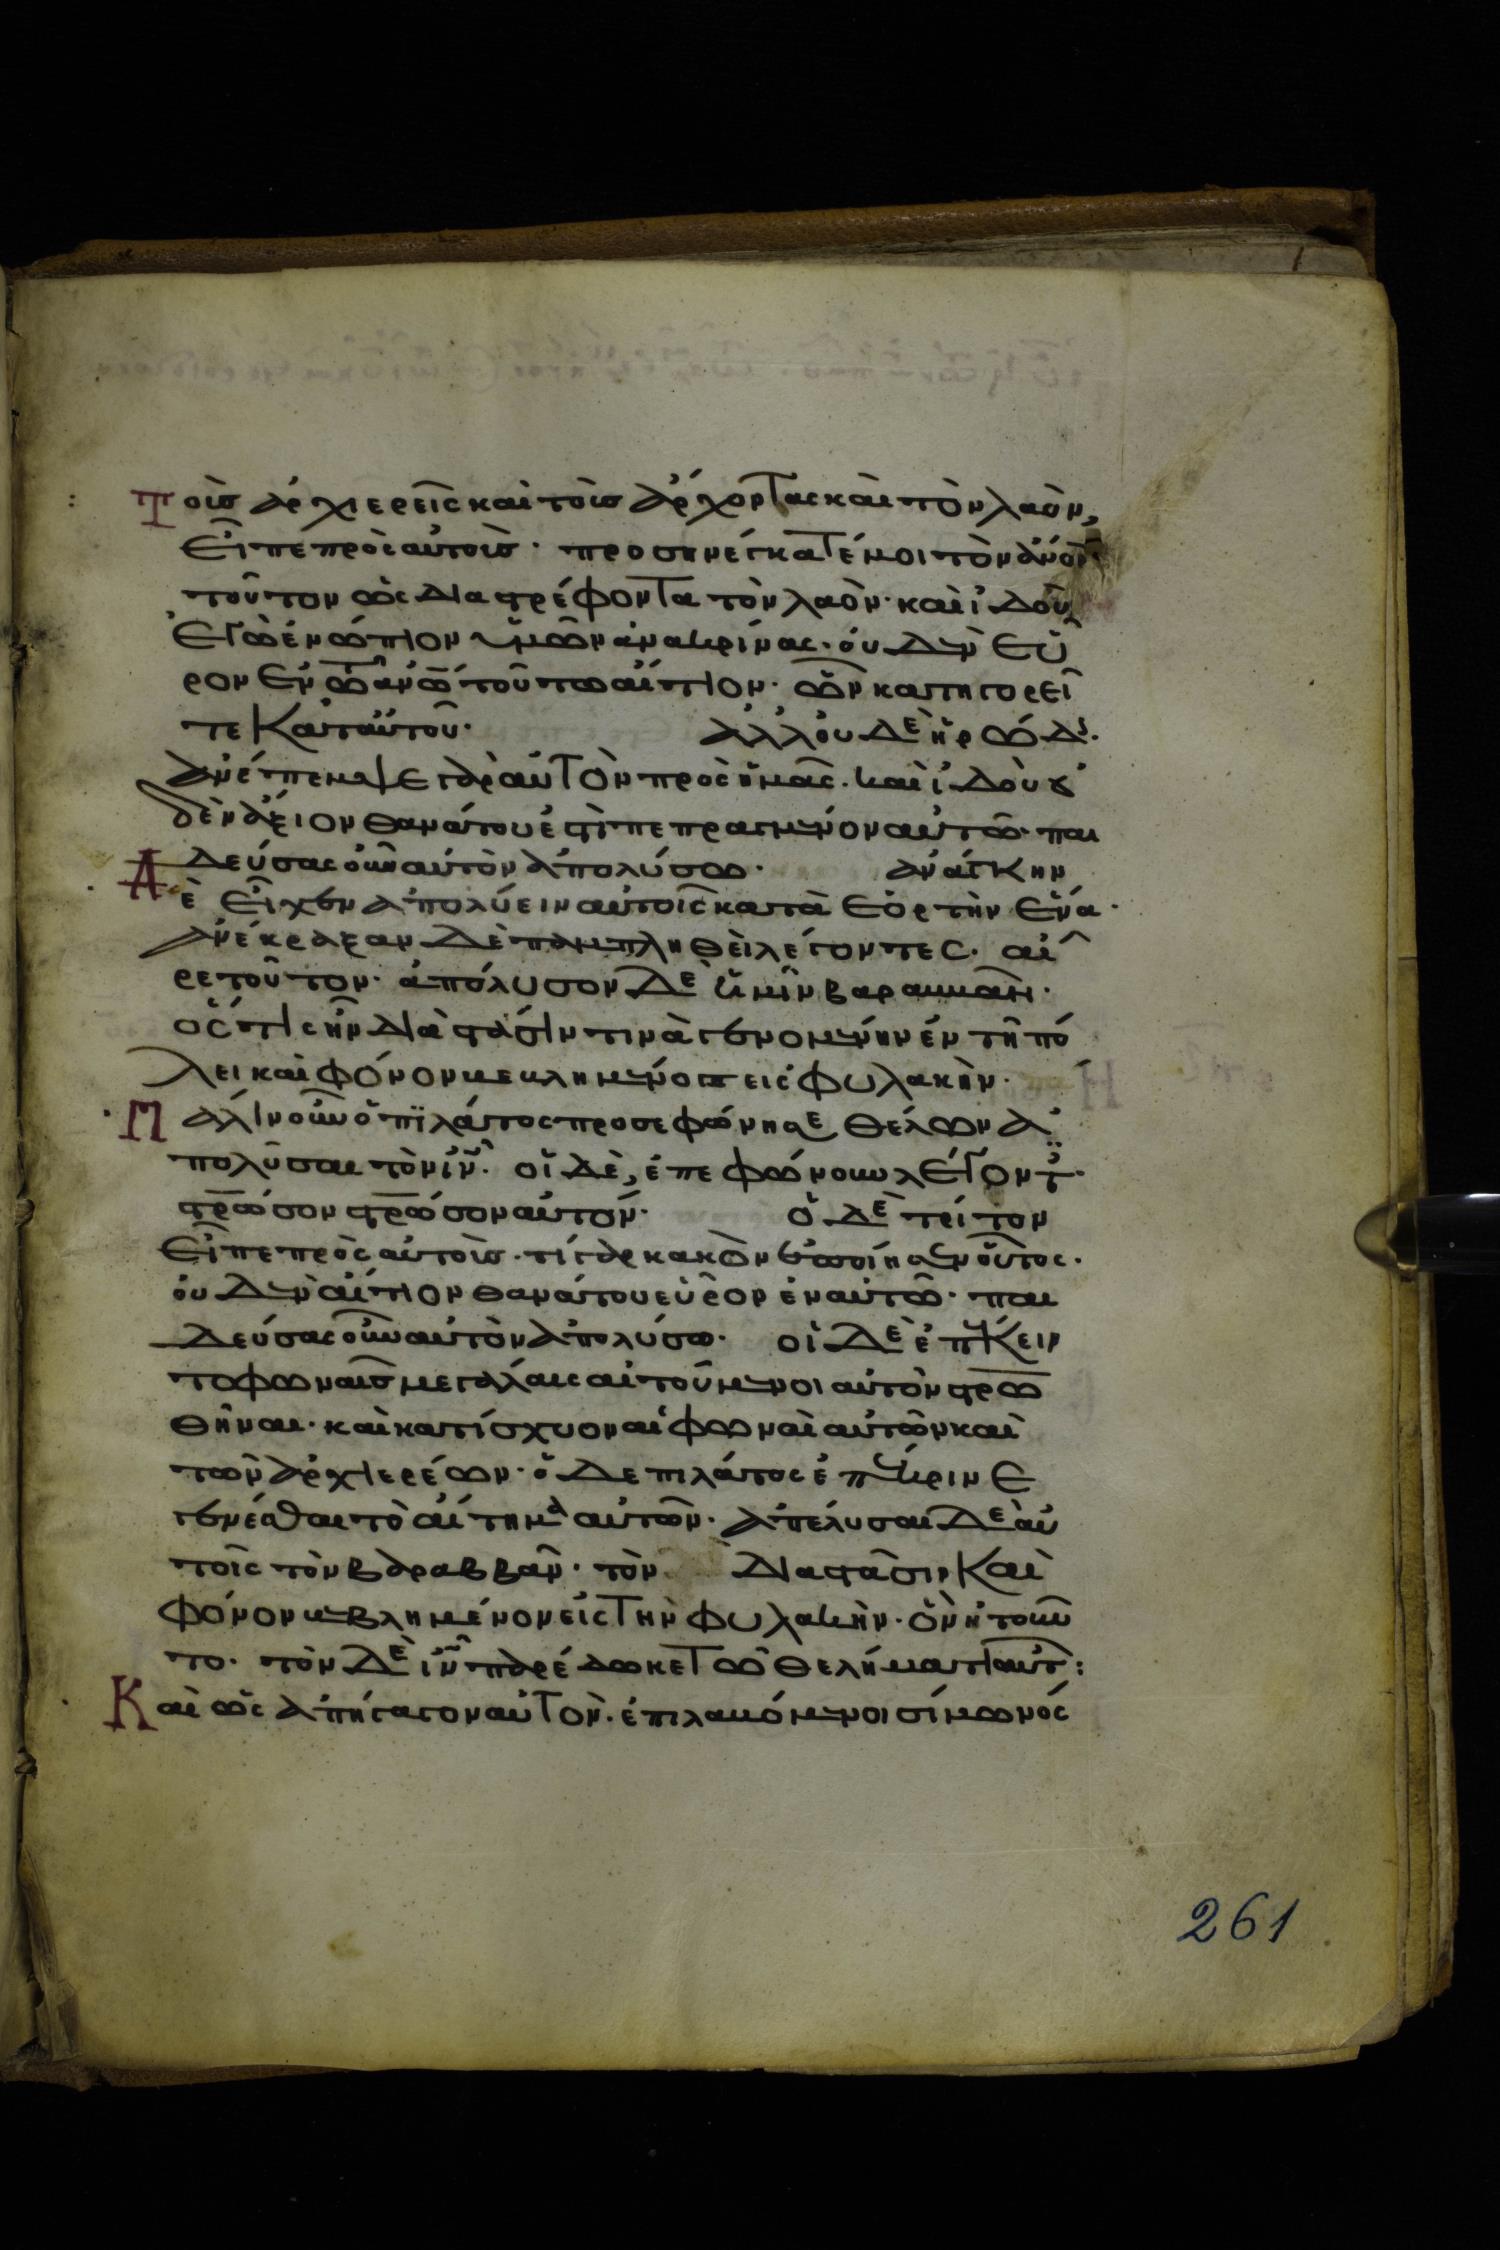 Τοὺς ἀρχιερεῖς καὶ τοὺς ἄρχοντας καὶ τὸν λαὸν,
εἶπε πρὸς αὐτούς· προσηνέγκατέ μοι τὸν ἄνον
τοῦτον ὡς διαστρέφοντα τὸν λαὸν· καὶ ἰδοὺ
ἐγὼ ἐνώπιον ὑμῶν ἀνακρίνας· οὐδὲν εὗ
ρον ἐν τῶ ἀνῶ τούτω αἴτιον· ὧν κατηγορεῖ
τε κατ αὐτοῦ· ἀλλ οὐδὲ ἡρώδ.
ἀνέπεμψε γὰρ αὐτὸν πρὸς ἡμᾶς. καὶ ἰδοὺ οὐ
δὲν ἄξιον θανάτου ἐστὶ πεπραγμένον αὐτῶ· παι
δεύσας οὖν αὐτὸν ἀπολύσω· ἀνάγκην
Δὲ εἶχεν ἀπολύειν αὐτοῖς κατὰ ἑορτὴν ἕνα·
ἀνέκραξαν δὲ παμπληθεὶ λέγοντες· αἶ
ρε τοῦτον· ἀπόλυσον δὲ ἡμῖν βαραββᾶν·
ὅστις ἦν διὰ στάσιν τινὰ γενομένην ἐν τῆ πό
λει καὶ φόνον βεβλημένος εἰς φυλακὴν·
Πάλιν οὖν ὁ πϊλάτος προσεφώνησε θέλων ἀ
πολῦσαι τὸν ἰν. οἱ δὲ, ἐπεφώνουν λέγοντ·
στρωσον στρωσον αὐτόν· ὁ δὲ τρίτον
εἶπε πρὸς αὐτούς· τί γὰρ κακὸν ἐποίησεν οὗτος·
οὐδὲν αἴτιον θανάτου εὗρον ἐν αὐτῶ· παι
δεύσας οὖν αὐτὸν ἀπολύσω· οἱ δὲ ἐπέκειν
το φωναῖς μεγάλαις αἰτούμενοι αὐτὸν στρω
θῆναι· καὶ κατίσχυον αἱ φωναὶ αὐτῶν καὶ
τῶν ἀρχιερέων· ὁ δὲ πιλάτος ἐπέκρινε
γενέσθαι τὸ αἴτημα αὐτῶν· ἀπέλυσαι δὲ αὐ
τοῖς τὸν βαραββᾶν· τὸν διὰ στάσιν καὶ
φόνον βεβλημένον εἰς τὴν φυλακὴν· ὃν ἠτοῦν
το· τὸν δὲ ἰν παρέδωκε τῶ θελήματι αὐτ:
Καὶ ὡς ἀπήγαγον αὐτὸν· ἐπιλαβόμενοι σίμωνός
261